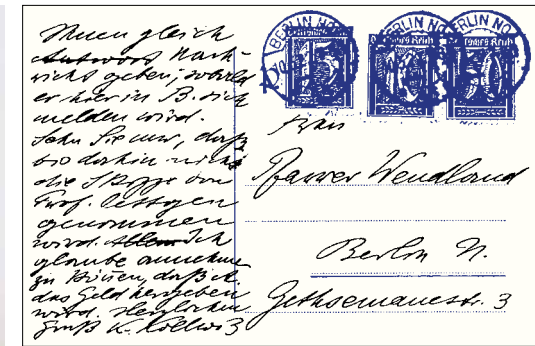 Ihnen gleich
Antwort Nach-
richt geben, sobald
er hier in B. sich
melden wird.
Sehn Sie nur, daß
bis dahin nicht
die Skizze von
Prof. Oettgen
genommen
wird. Allem Ich
glaube annehmen
zu können, daß
das Geld hergeben
wird. Herzlichen
Gruß K. Kollwitz
BERLIN NO
BERLIN NO
BERLIN NO
Deutsches Reich
Frau
Pfarrer Wendland
Berlin N.
Gethsemanestr. 3